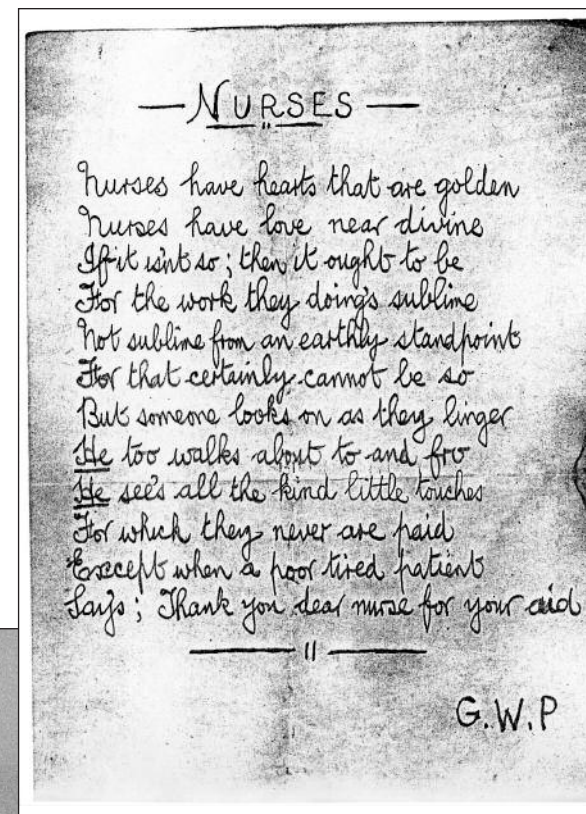 — NURSES —
"
Nurses have hearts that are golden
Nurses have love near divine
If it isn't so; then it ought to be
For the work they doing's sublime
Not sublime from an earthly standpoint
For that certainly cannot be so
But someone looks on as they linger
He too walks about to and fro
He see's all the kind little touches
For which they never are paid
Except when a poor tired patient
Say's; Thank you dear nurse for your aid
— " —
G.W.P